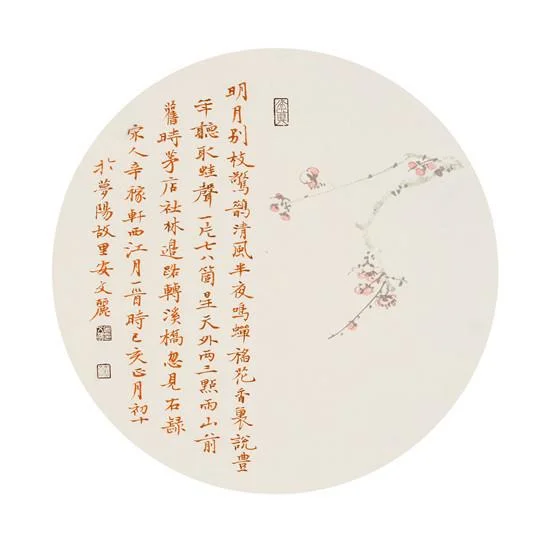 明月别枝驚鵲清風半夜鳴蟬稻花香裏說豊
年聽取蛙聲一片七八箇星天外兩三點雨山前
舊時茅店社林邊路轉溪橋忽見右録
宋人辛稼軒西江月一首時己亥正月初十
於夢陽故里安文麗